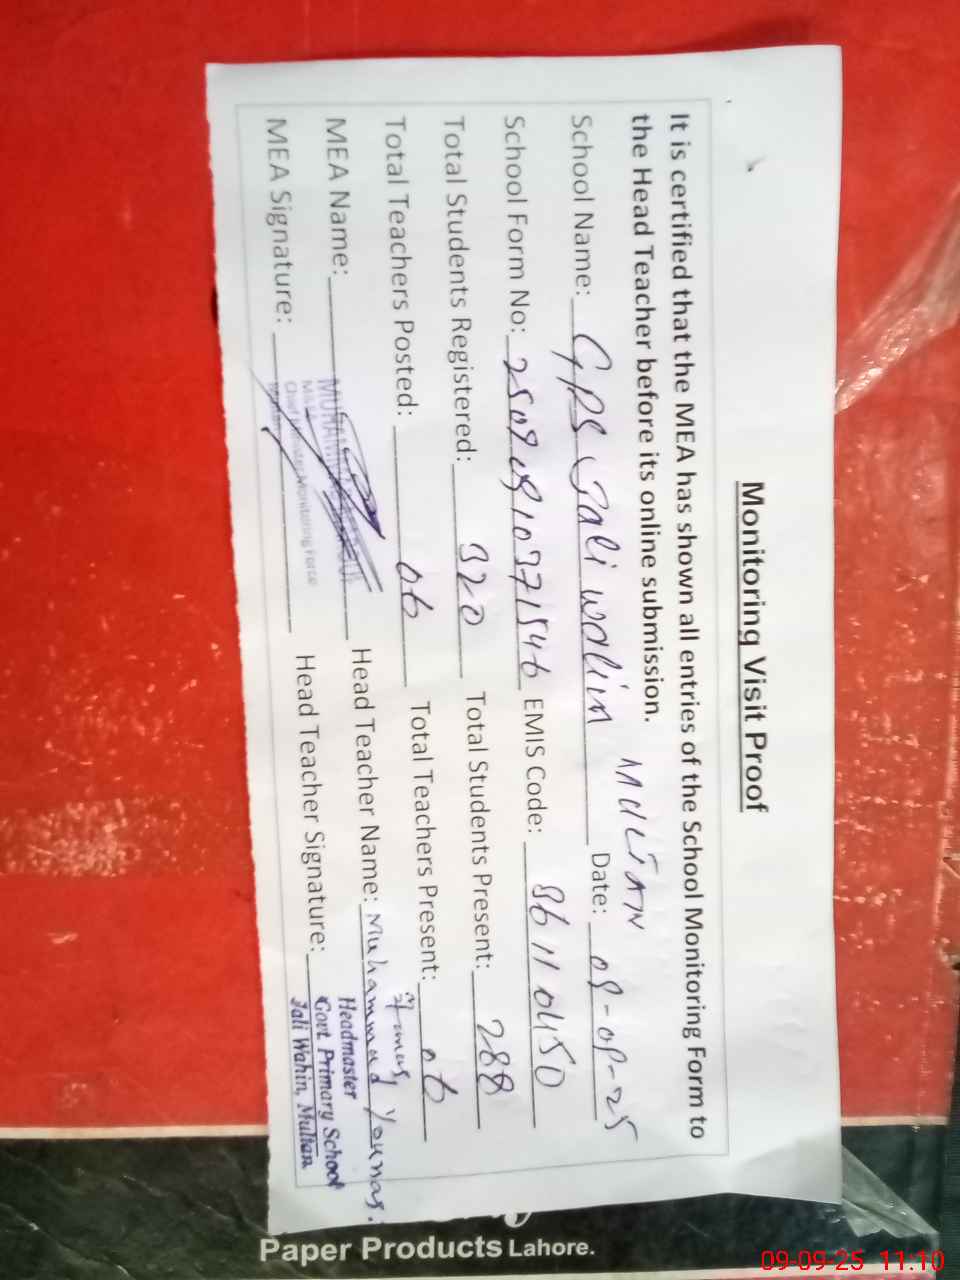 Monitoring Visit Proof
It is certified that the MEA has shown all entries of the School Monitoring Form to
the Head Teacher before its online submission.
MULTAN
School Name: GPS Jali wahin Date: 09-09-25
School Form No: EMIS Code:
Total Students Registered: 320 Total Students Present: 288
Total Teachers Posted: 06 Total Teachers Present: 06
MEA Name: Head Teacher Name: Muhammad Younas
MEA Signature: Head Teacher Signature:
Chief Minister Monitoring Force
Headmaster
Govt. Primary School
Jali Wahin, Multan
Paper Products Lahore.
09-09-25 11:10